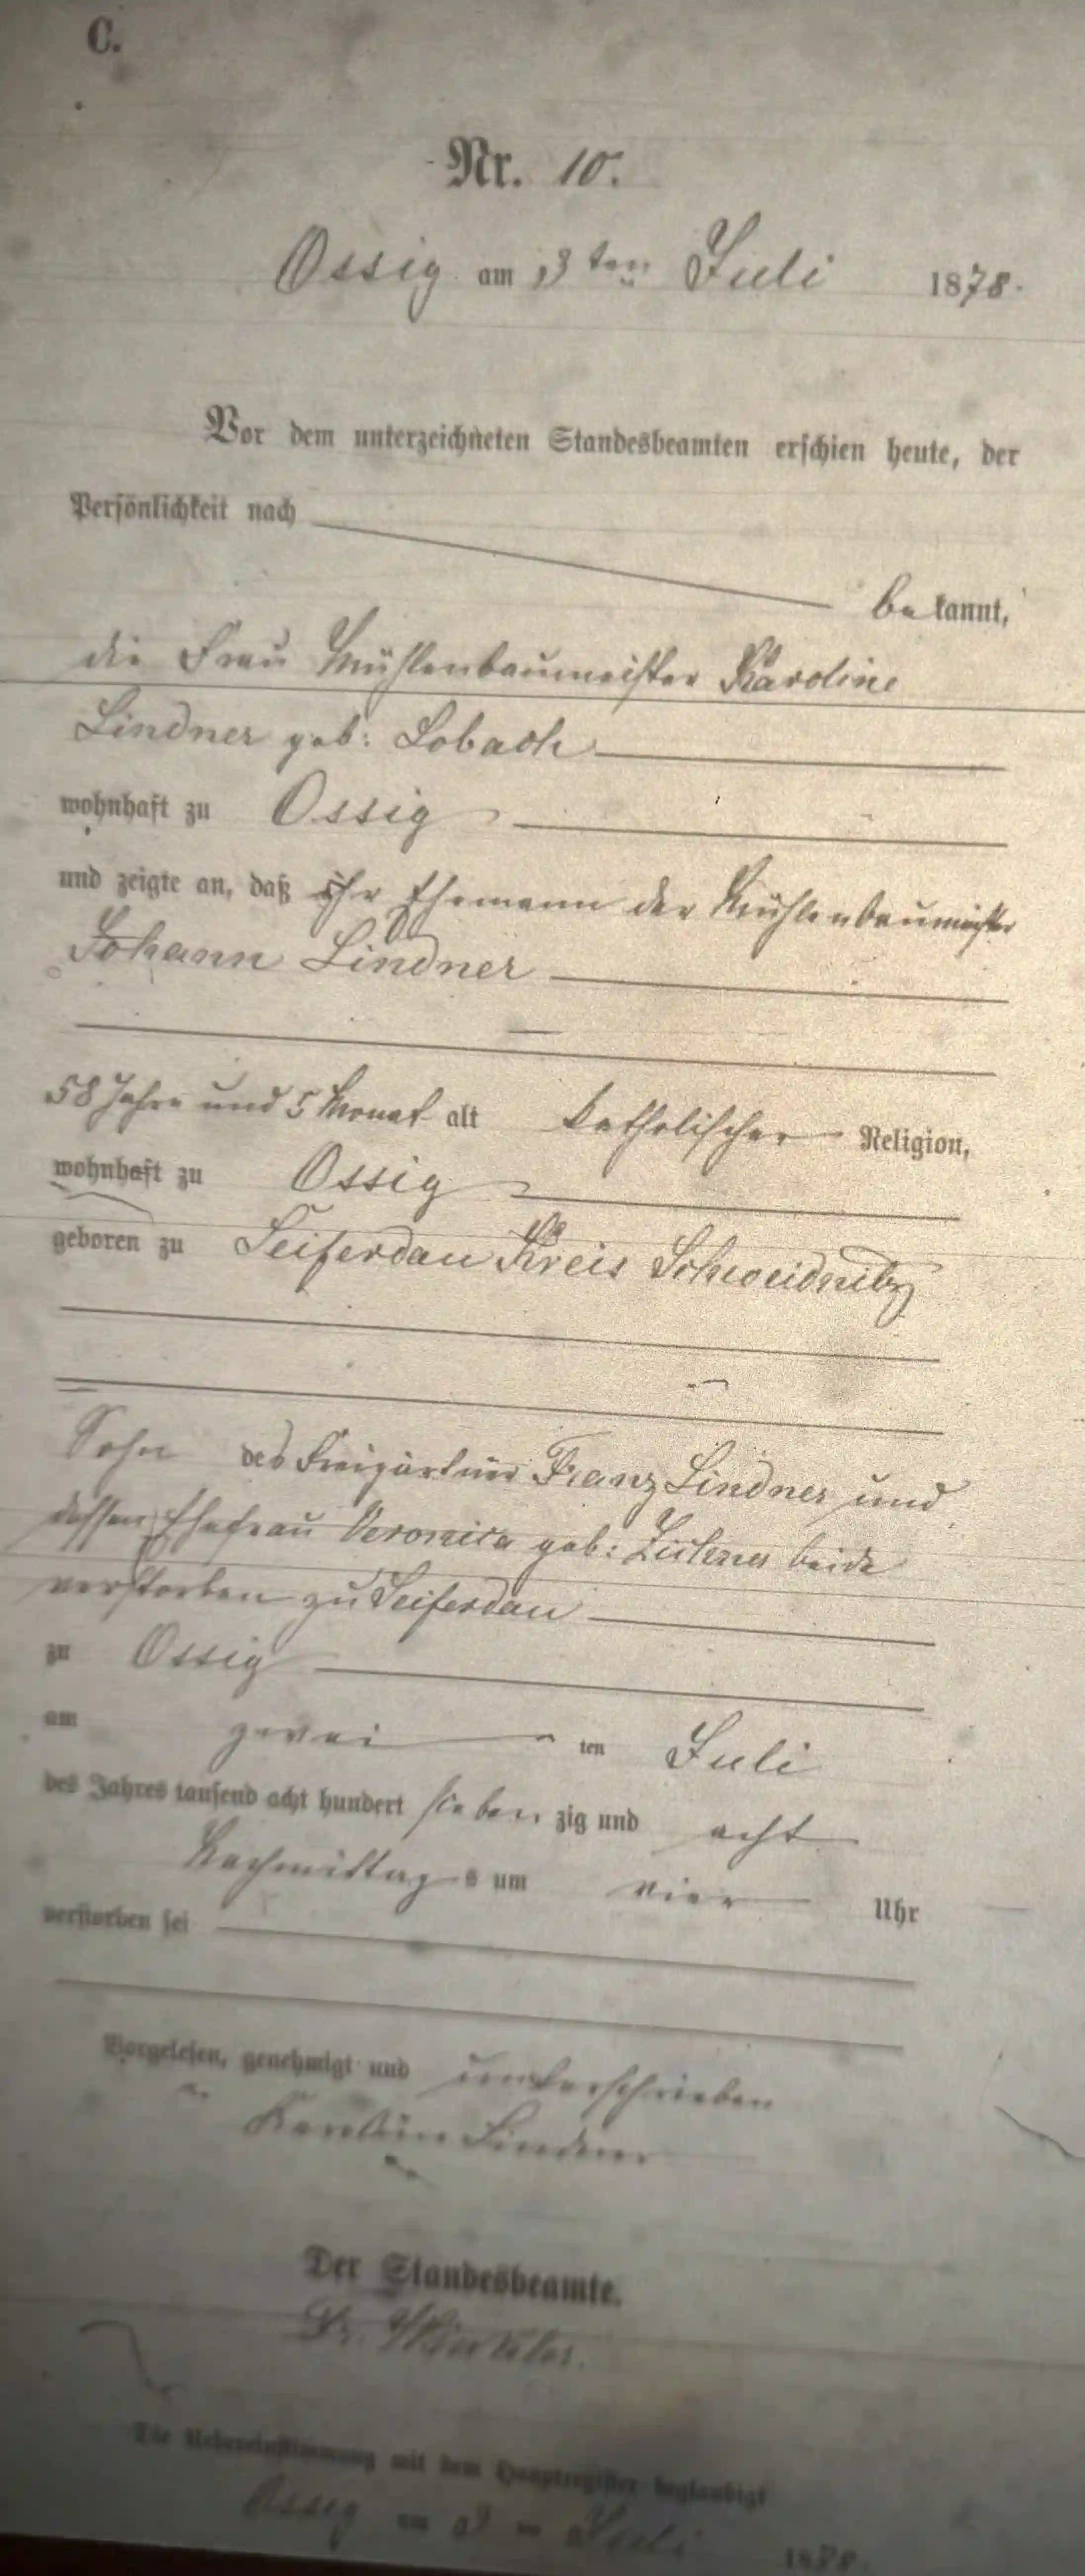 C.
Nr. 10.
Ossig am 3ten Juli 1878.
Vor dem unterzeichneten Standesbeamten erschien heute, der
Persönlichkeit nach
be kannt,
die Frau Mühlenbaumeister Karoline
Lindner geb: Lobach
wohnhaft zu Ossig
und zeigte an, daß ihr Ehemann der Mühlenbaumeister
Johann Lindner
58 Jahre und 5 Monat alt katholischer Religion,
wohnhaft zu Ossig
geboren zu Seiferdau Kreis Schweidnitz
Sohn des Freigärtner Franz Lindner und
dessen Ehefrau Veronica geb: beide
verstorben zu Seiferdau
zu Ossig
am zwei ten Juli
des Jahres tausend acht hundert sieben zig und acht
Nachmittag s um vier Uhr
verstorben sei
Vorgelesen, genehmigt und unterschrieben
Lindner
Der Standesbeamte.
Winkler.
Die Uebereinstimmung mit dem Hauptregister beglaubigt
Ossig am 3 ten Juli 1878.